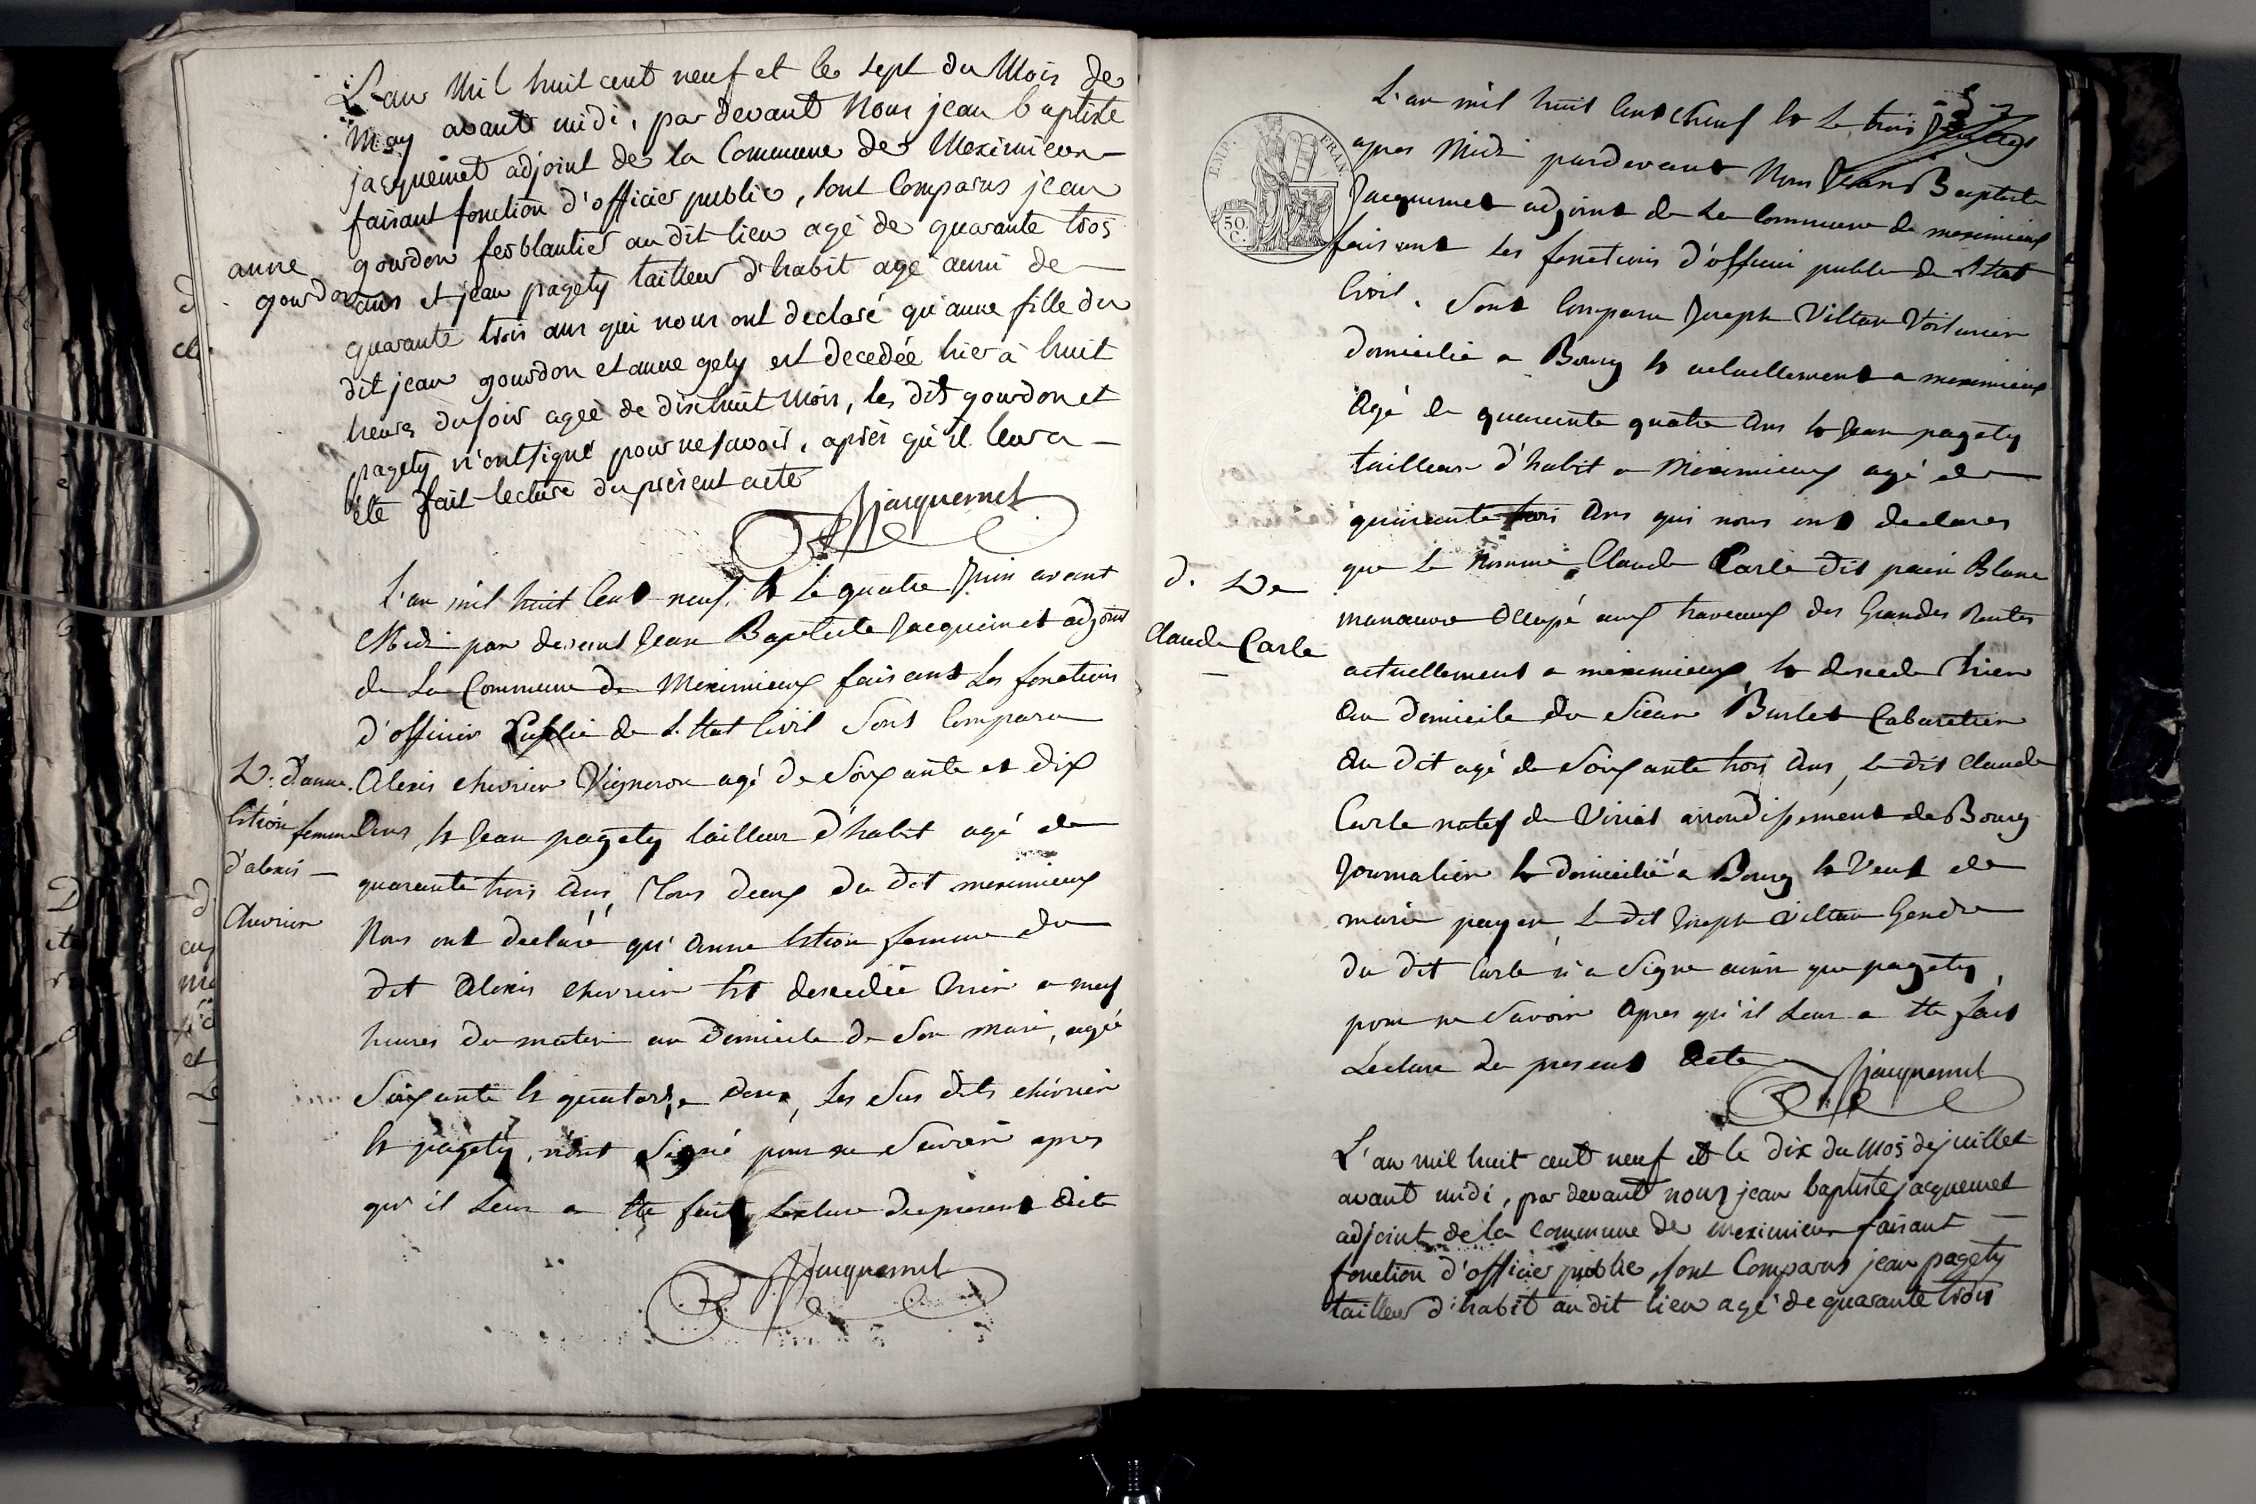 L'an mil huit cent neuf et le sept du mois de
may avant midi, par devant nous jean baptiste
jacquemet adjoint de la Commune de Meximieux
faisant fonction d'officier public, sont Comparus jean
gourdon ferblantier au dit lieu agé de quarante trois
anne
gourdon
ans et jean pagety tailleur d'habit agé aussi de
quarante trois ans qui nous ont declaré qu'anne fille du
dit jean gourdon et anne gely est decedée hier à huit
heures du soir agée de dixhuit mois, les dits gourdon et
pagety n'ont signé pour ne savoir, après qu'il leur a
été fait lecture du présent acte
JJacquemet
L'an mil huit Cent neuf, Et Le quatre Juin avant
Midi par devant Jean Baptiste Jacquemet adjoint
de La Commune de Meximieux faisant Les fonctions
d'officier Public de L'Etat Civil Sont Comparu
D. d'anne
femme
d'alexis
Chevrier
Alexis chevrier Vigneron agé de Soixante et dix
Ans, Et Jean pagety tailleur d'habit agé de
quarante trois Ans, Tous deux du dit meximieux
Nous ont declaré qu'Anne femme du
dit Alexis chevrier Est decedée hier a neuf
heures du matin au Domicile de Son mari, agée
Soixante Et quatorze ans, Les Sus dits chevrier
Et pagety, n'ont Signé pour ne Savoir apres
qu'il Leur a Ete fait Lecture du present Acte
JJacquemet
L'an mil huit Cent neuf Et Le trois
EMP. FRAN.
50 C.
apres Midi pardevant Nous Jean Baptiste
Jacquemet adjoint de La Commune de meximieux
faisant Les fonctions d'officier public de L'Etat
Civil. Sont Comparu Joseph Voiturier
domicilié a Bourg Et actuellement a meximieux
Agé de quarante quatre Ans Et Jean pagety
tailleur d'habit a Meximieux agé de
quarante trois Ans qui nous ont declarer
D. De
Claude Carle
que Le Nommé Claude Carle dit pain Blanc
manœuvre Occupé aux travaux des Grandes Routes
actuellement a meximieux Et decede hier
Au Domicile du Sieur Burlet Cabaretier
Au dit agé de Soixante trois Ans, Le dit Claude
Carle natif de Viriat arrondissement de Bourg
Journalier Et domicilié a Bourg Et Veuf de
marie payen Le dit Joseph Gendre
du dit Carle n'a Signe ainsi que pagety,
pour ne Savoir Apres qu'il Leur a Ete fait
Lecture du present Acte
JJacquemet
L'an mil huit cent neuf et le dix du mois de juillet
avant midi, par devant nous jean baptiste jacquemet
adjoint de la commune de meximieux faisant
fonction d'officier public, sont Comparus jean pagety
tailleur d'habit au dit lieu agé de quarante trois